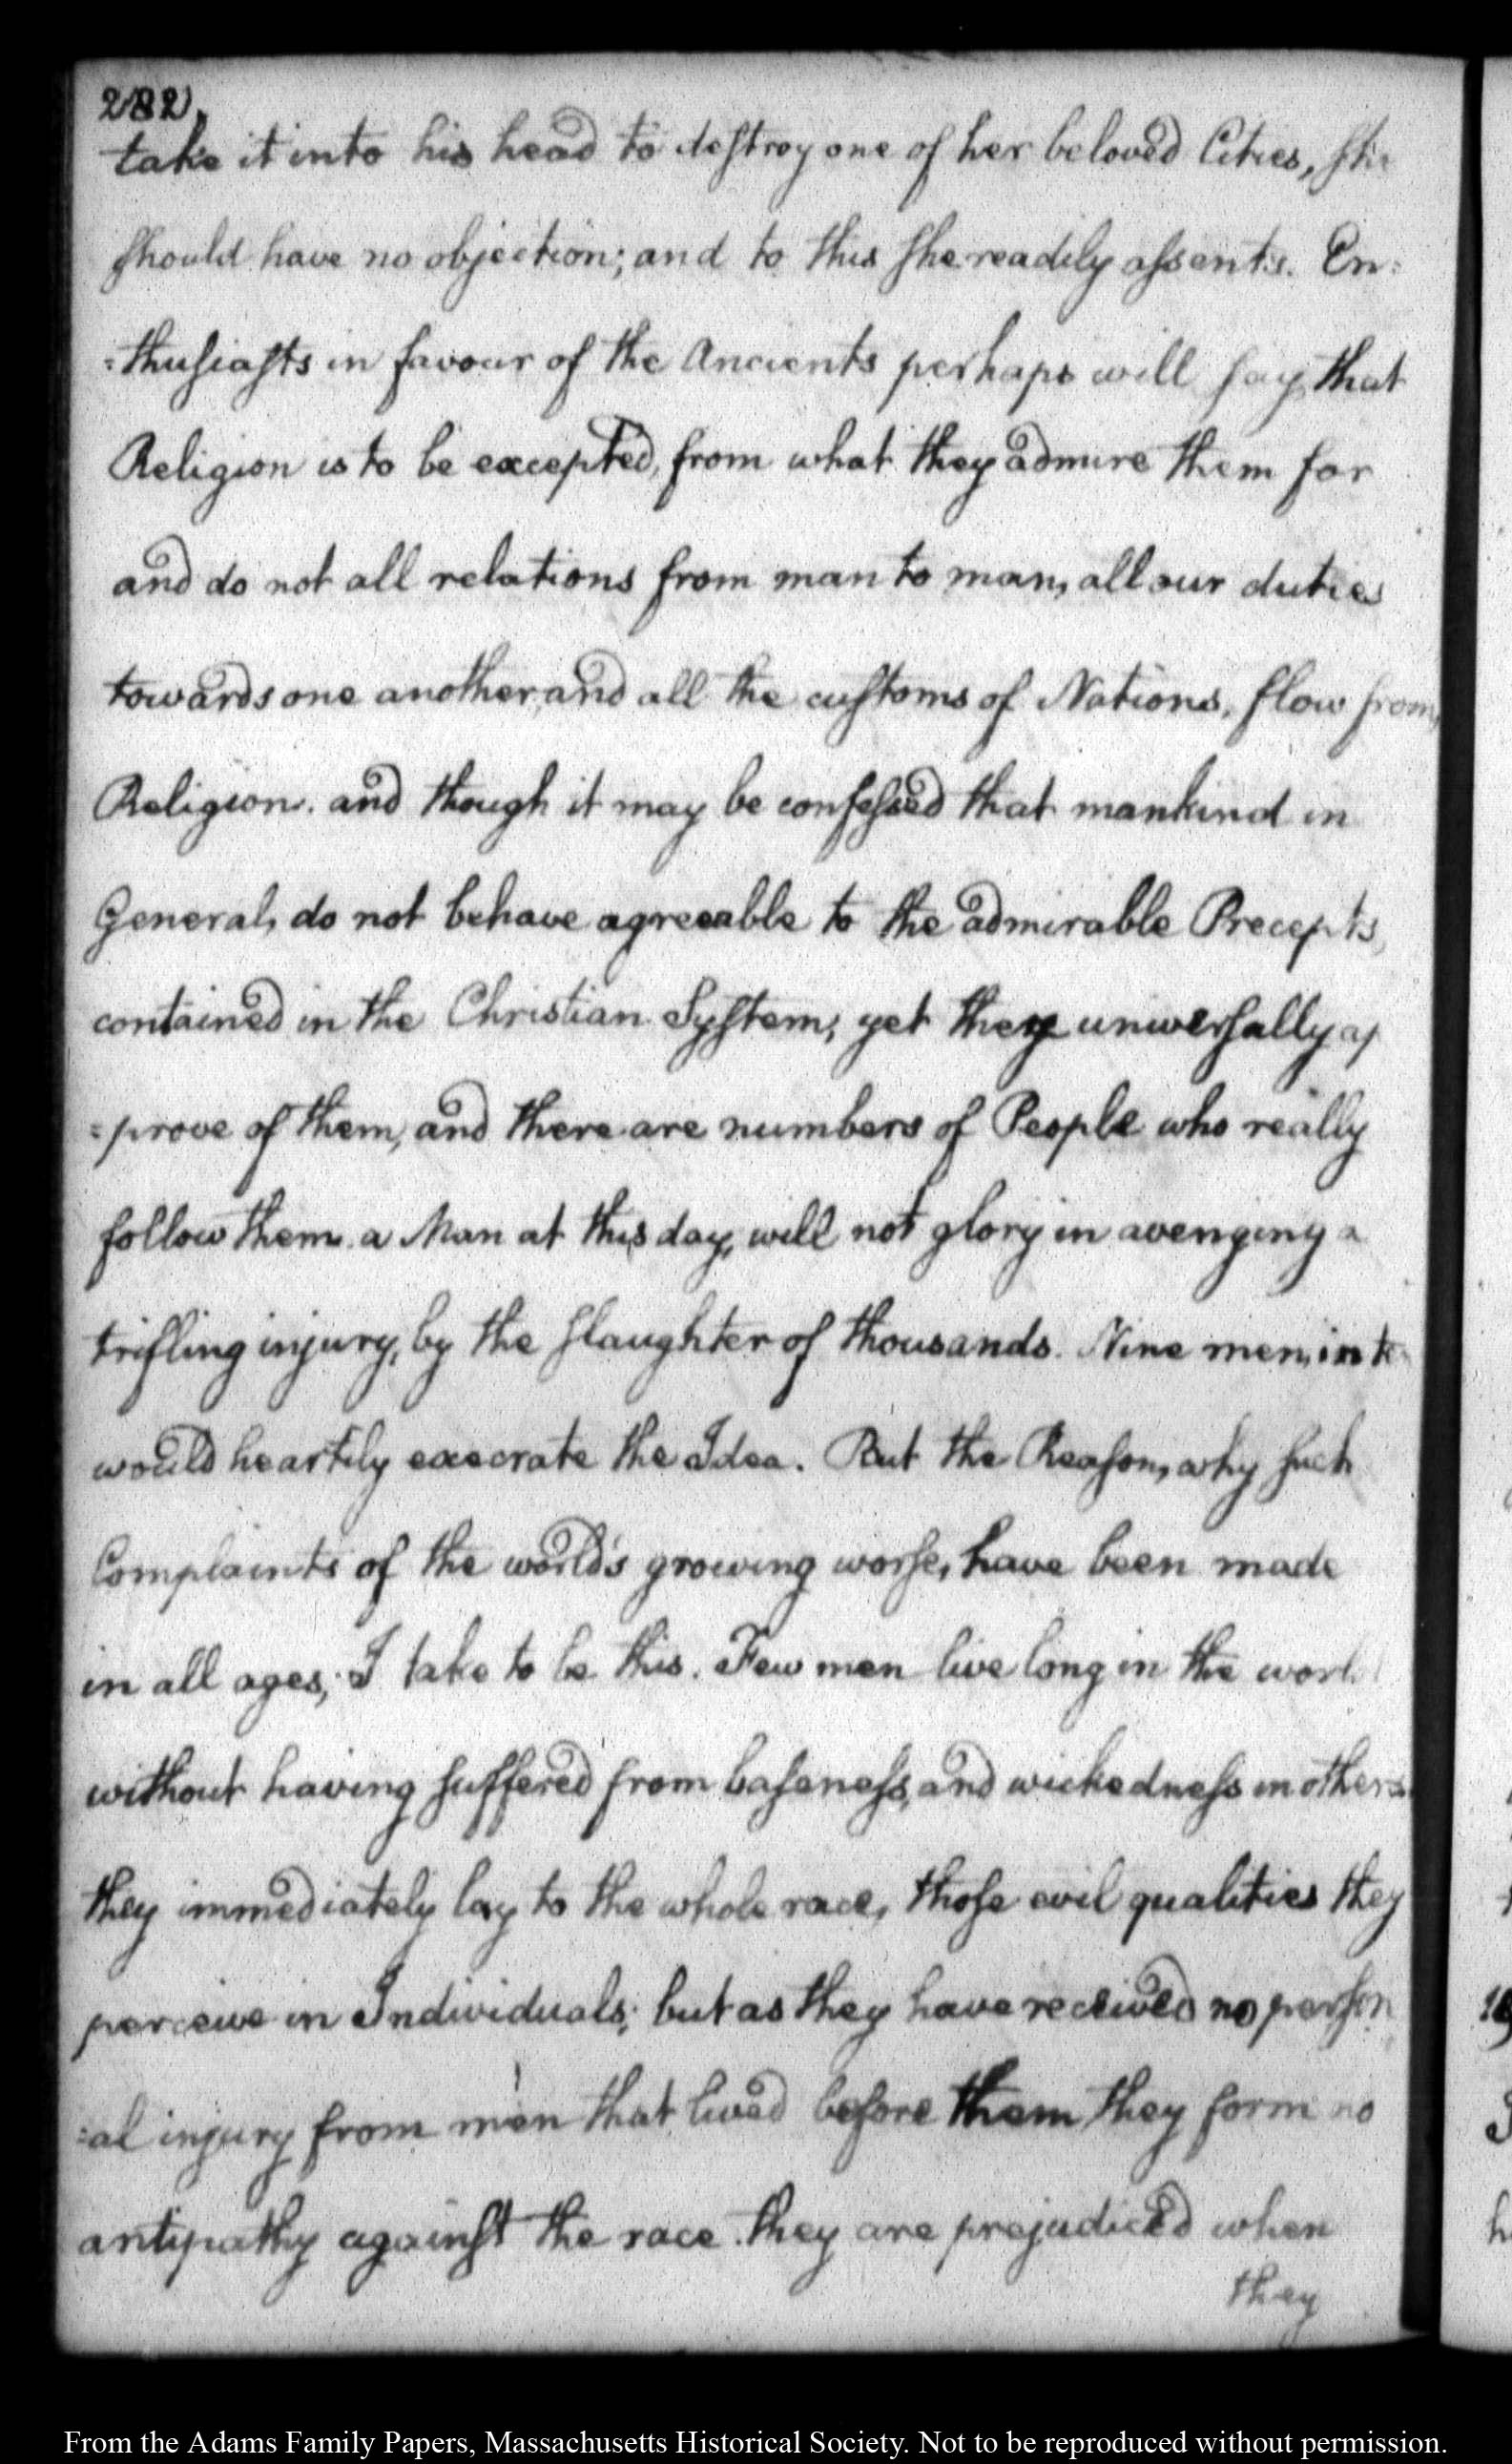 282.
take it into his head to destroy one of her beloved Cities, she
should have no objection; and to this she readily assents. En=
=thusiasts in favour of the Ancients perhaps will say, that
Religion is to be excepted, from what they admire them for
and do not all relations from man to man, all our duties
towards one another, and all the customs of Nations, flow from,
Religion. and though it may be confessed that mankind in
General, do not behave agreeable to the admirable Precepts,
contained in the Christian System; yet they universally ap
=prove of them, and there are numbers of People who really
follow them. a Man at this day, will not glory in avenging a
trifling injury, by the slaughter of thousands. Nine men, in ten
would heartily execrate the Idea. But the Reason, why such
Complaints of the world's growing worse, have been made
in all ages, I take to be this. Few men live long in the world
without having suffered from baseness, and wickedness in others.
they immediately lay to the whole race, those evil qualities they
perceive in Individuals; but as they have received no person
=al injury from men that lived before them they form no
antipathy against the race. they are prejudiced when
they
From the Adams Family Papers, Massachusetts Historical Society. Not to be reproduced without permission.